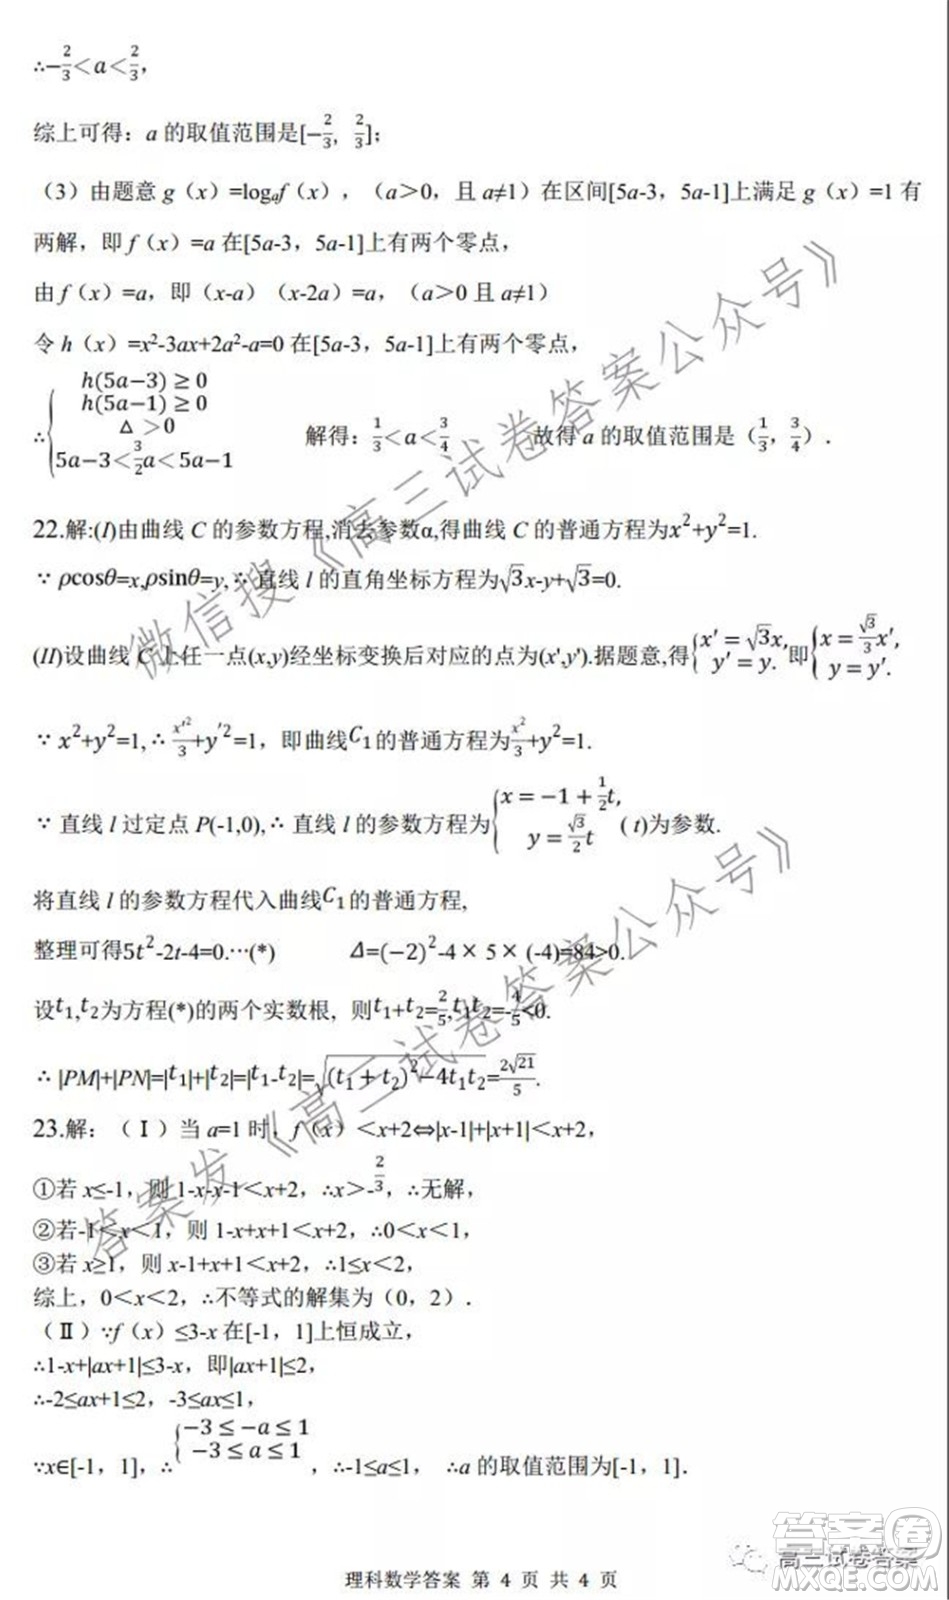 ∴-2/3＜a＜2/3，
综上可得：a 的取值范围是[-2/3，2/3]；
（3）由题意 g（x）=logₐf（x），（a＞0，且 a≠1）在区间[5a-3，5a-1]上满足 g（x）=1 有
两解，即 f（x）=a 在[5a-3，5a-1]上有两个零点，
由 f（x）=a，即（x-a）（x-2a）=a，（a＞0 且 a≠1）
令 h（x）=x²-3ax+2a²-a=0 在[5a-3，5a-1]上有两个零点，
h(5a−3) ≥ 0
h(5a−1) ≥ 0
△ >0
∴{5a−3<3/2a<5a−1 解得：1/3＜a＜3/4 故得 a 的取值范围是（1/3，3/4）.
22.解:(I)由曲线 C 的参数方程,消去参数α,得曲线 C 的普通方程为x²+y²=1.
∵ ρcosθ=x,ρsinθ=y,∴直线 l 的直角坐标方程为√3x-y+√3=0.
(II)设曲线 C 上任一点(x,y)经坐标变换后对应的点为(x',y').据题意,得{x′ = √3x, y′ = y. 即{x = √3/3x′, y = y′.
∵ x²+y²=1,∴ x′²/3+y′²=1，即曲线C₁的普通方程为x²/3+y²=1.
∵ 直线 l 过定点 P(-1,0),∴ 直线 l 的参数方程为{x = −1 + 1/2t, y = √3/2t ( t)为参数.
将直线 l 的参数方程代入曲线C₁的普通方程,
整理可得5t²-2t-4=0.…(*) Δ=(−2)²-4× 5× (-4)=84>0.
设t₁,t₂为方程(*)的两个实数根, 则t₁+t₂=2/5,t₁t₂=-4/5<0.
∴ |PM|+|PN|=|t₁|+|t₂|=|t₁-t₂|=√(t₁+t₂)²−4t₁t₂=2√21/5.
23.解：（Ⅰ）当 a=1 时，f（x）＜x+2⇔|x-1|+|x+1|＜x+2，
①若 x≤-1，则 1-x-x-1＜x+2，∴x＞-2/3，∴无解，
②若-1＜x＜1，则 1-x+x+1＜x+2，∴0＜x＜1，
③若 x≥1，则 x-1+x+1＜x+2，∴1≤x＜2，
综上，0＜x＜2，∴不等式的解集为（0，2）.
（Ⅱ）∵f（x）≤3-x 在[-1，1]上恒成立，
∴1-x+|ax+1|≤3-x，即|ax+1|≤2，
∴-2≤ax+1≤2，-3≤ax≤1，
∵x∈[-1，1]，∴{−3 ≤ −a ≤ 1 −3 ≤ a ≤ 1，∴-1≤a≤1， ∴a 的取值范围为[-1，1].
微信搜《高三试卷答案公众号》
答案发《高三试卷答案公众号》
高三试卷答案
答案卷
MXQE.COM
理科数学答案 第 4 页 共 4 页